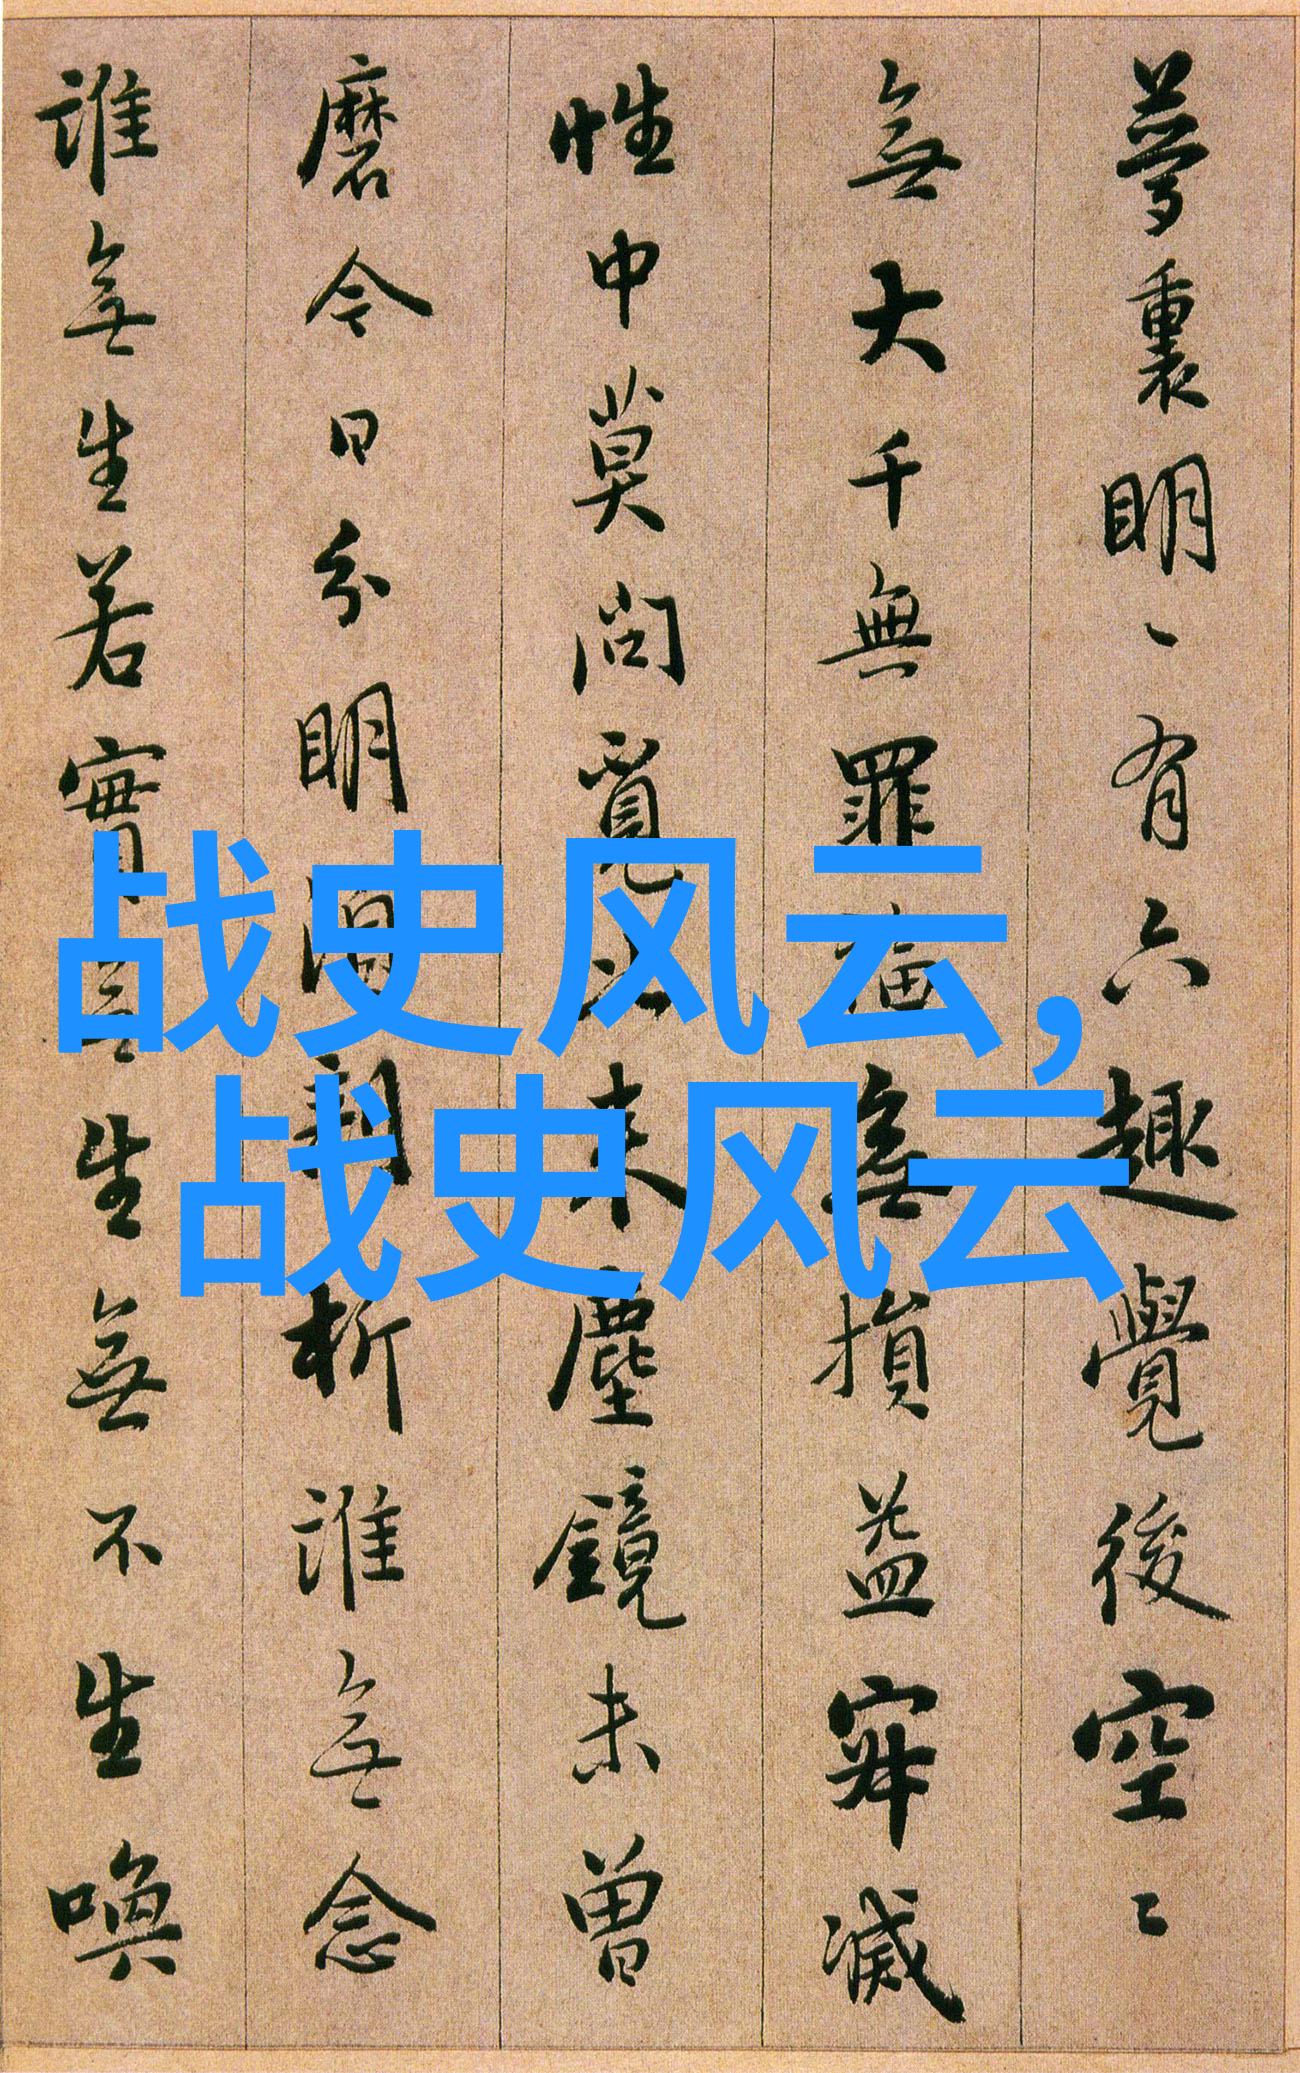 夢裏明丶有六趣覺後空〻
無大千無罪福無損益寂滅
性中莫問覓比来塵鏡未曾
磨今日分明須剖析誰無念
誰無生若實無生無不生喚
战史风云,
战史风云